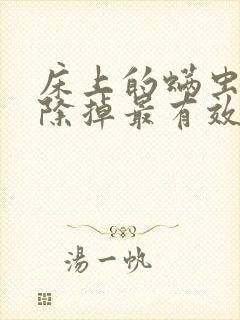 床上的螨虫
除掉最有效
湯一帆